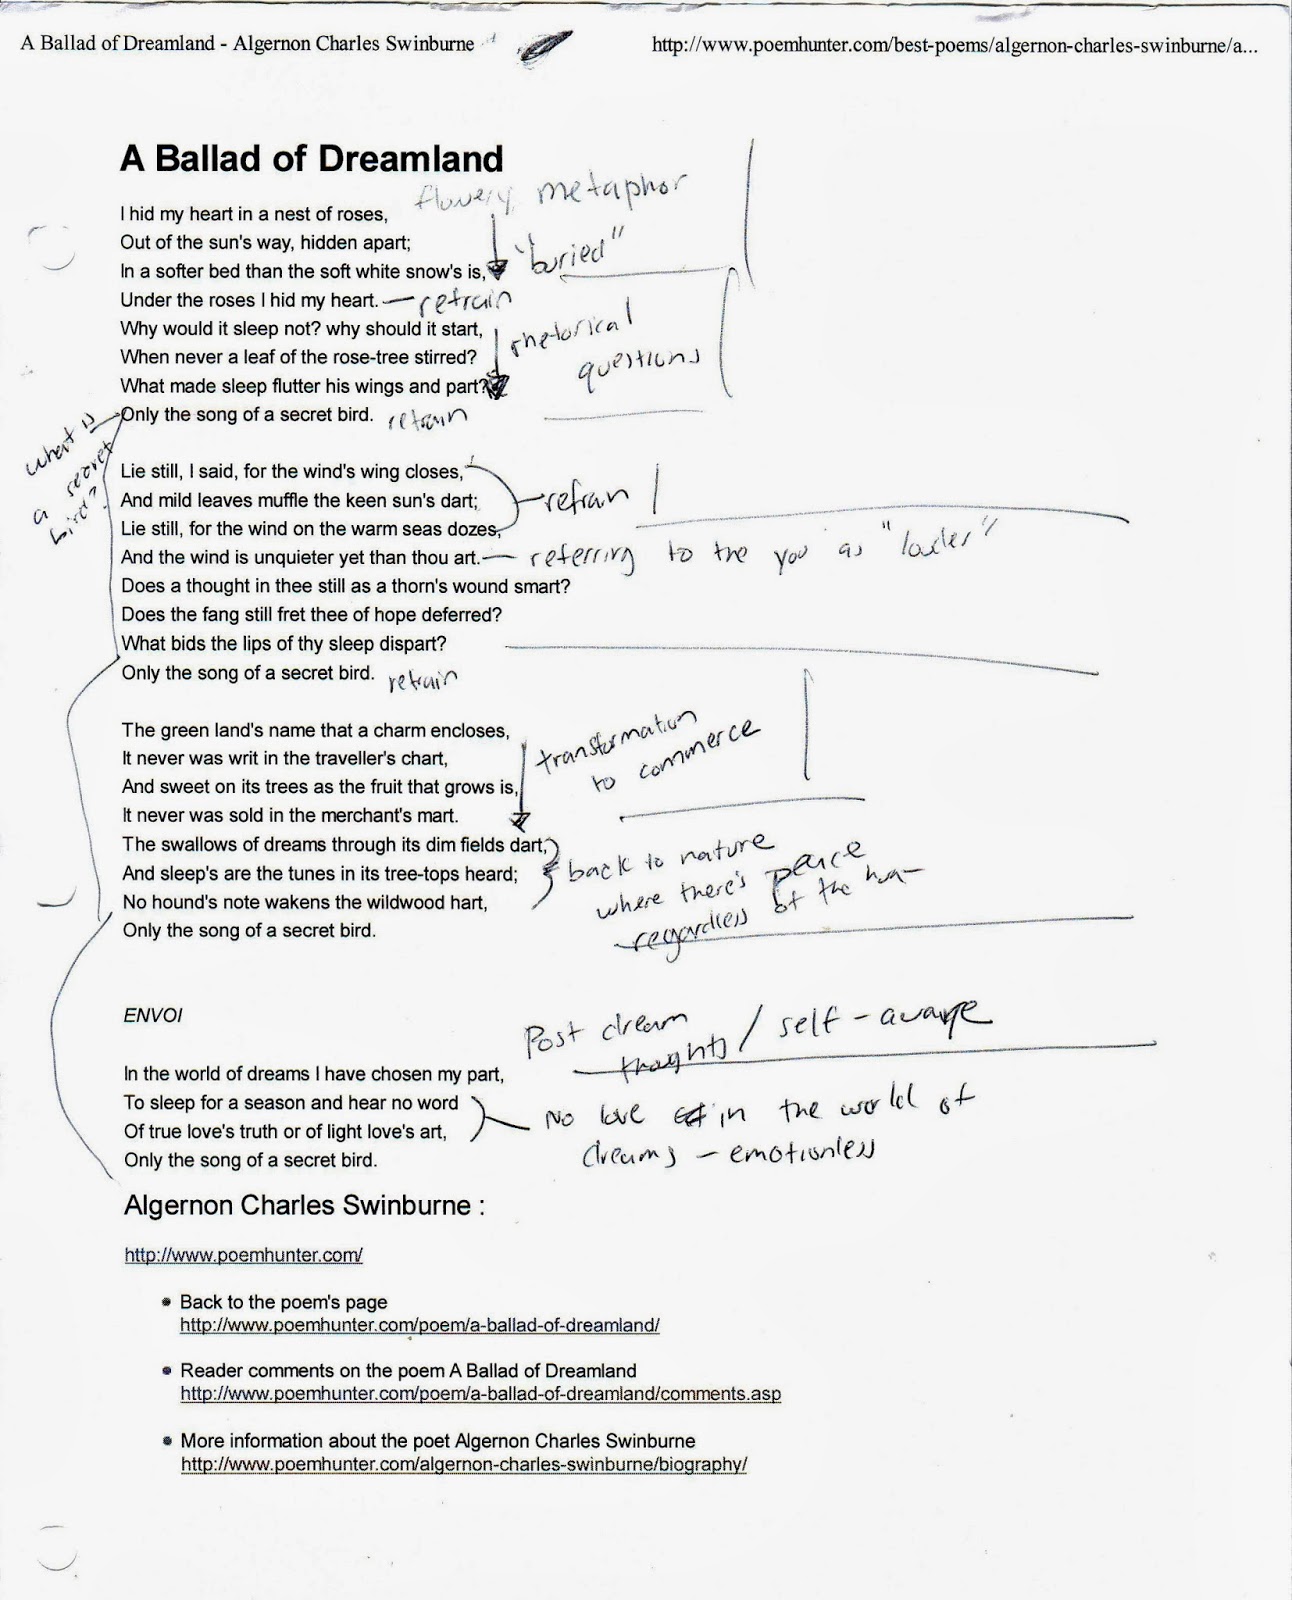 A Ballad of Dreamland - Algernon Charles Swinburne
http://www.poemhunter.com/best-poems/algernon-charles-swinburne/a...
A Ballad of Dreamland
flowery metaphor
I hid my heart in a nest of roses,
Out of the sun's way, hidden apart;
"buried"
In a softer bed than the soft white snow's is,
Under the roses I hid my heart. — refrain
Why would it sleep not? why should it start,
rhetorical
When never a leaf of the rose-tree stirred?
questions
What made sleep flutter his wings and part?
Only the song of a secret bird. refrain
what is
a secret
bird?
Lie still, I said, for the wind's wing closes,
And mild leaves muffle the keen sun's dart;
refran
Lie still, for the wind on the warm seas dozes,
And the wind is unquieter yet than thou art. — referring to the you as "louder"
Does a thought in thee still as a thorn's wound smart?
Does the fang still fret thee of hope deferred?
What bids the lips of thy sleep dispart?
Only the song of a secret bird. refrain
The green land's name that a charm encloses,
It never was writ in the traveller's chart,
transformation
to commerce
And sweet on its trees as the fruit that grows is,
It never was sold in the merchant's mart.
The swallows of dreams through its dim fields dart,
And sleep's are the tunes in its tree-tops heard;
back to nature
where there's peace
regardless of the
No hound's note wakens the wildwood hart,
Only the song of a secret bird.
ENVOI
Post dream
thoughts / self-aware
In the world of dreams I have chosen my part,
To sleep for a season and hear no word
Of true love's truth or of light love's art,
No love in the world of
dreams - emotionless
Only the song of a secret bird.
Algernon Charles Swinburne :
http://www.poemhunter.com/
• Back to the poem's page
http://www.poemhunter.com/poem/a-ballad-of-dreamland/
• Reader comments on the poem A Ballad of Dreamland
http://www.poemhunter.com/poem/a-ballad-of-dreamland/comments.asp
• More information about the poet Algernon Charles Swinburne
http://www.poemhunter.com/algernon-charles-swinburne/biography/